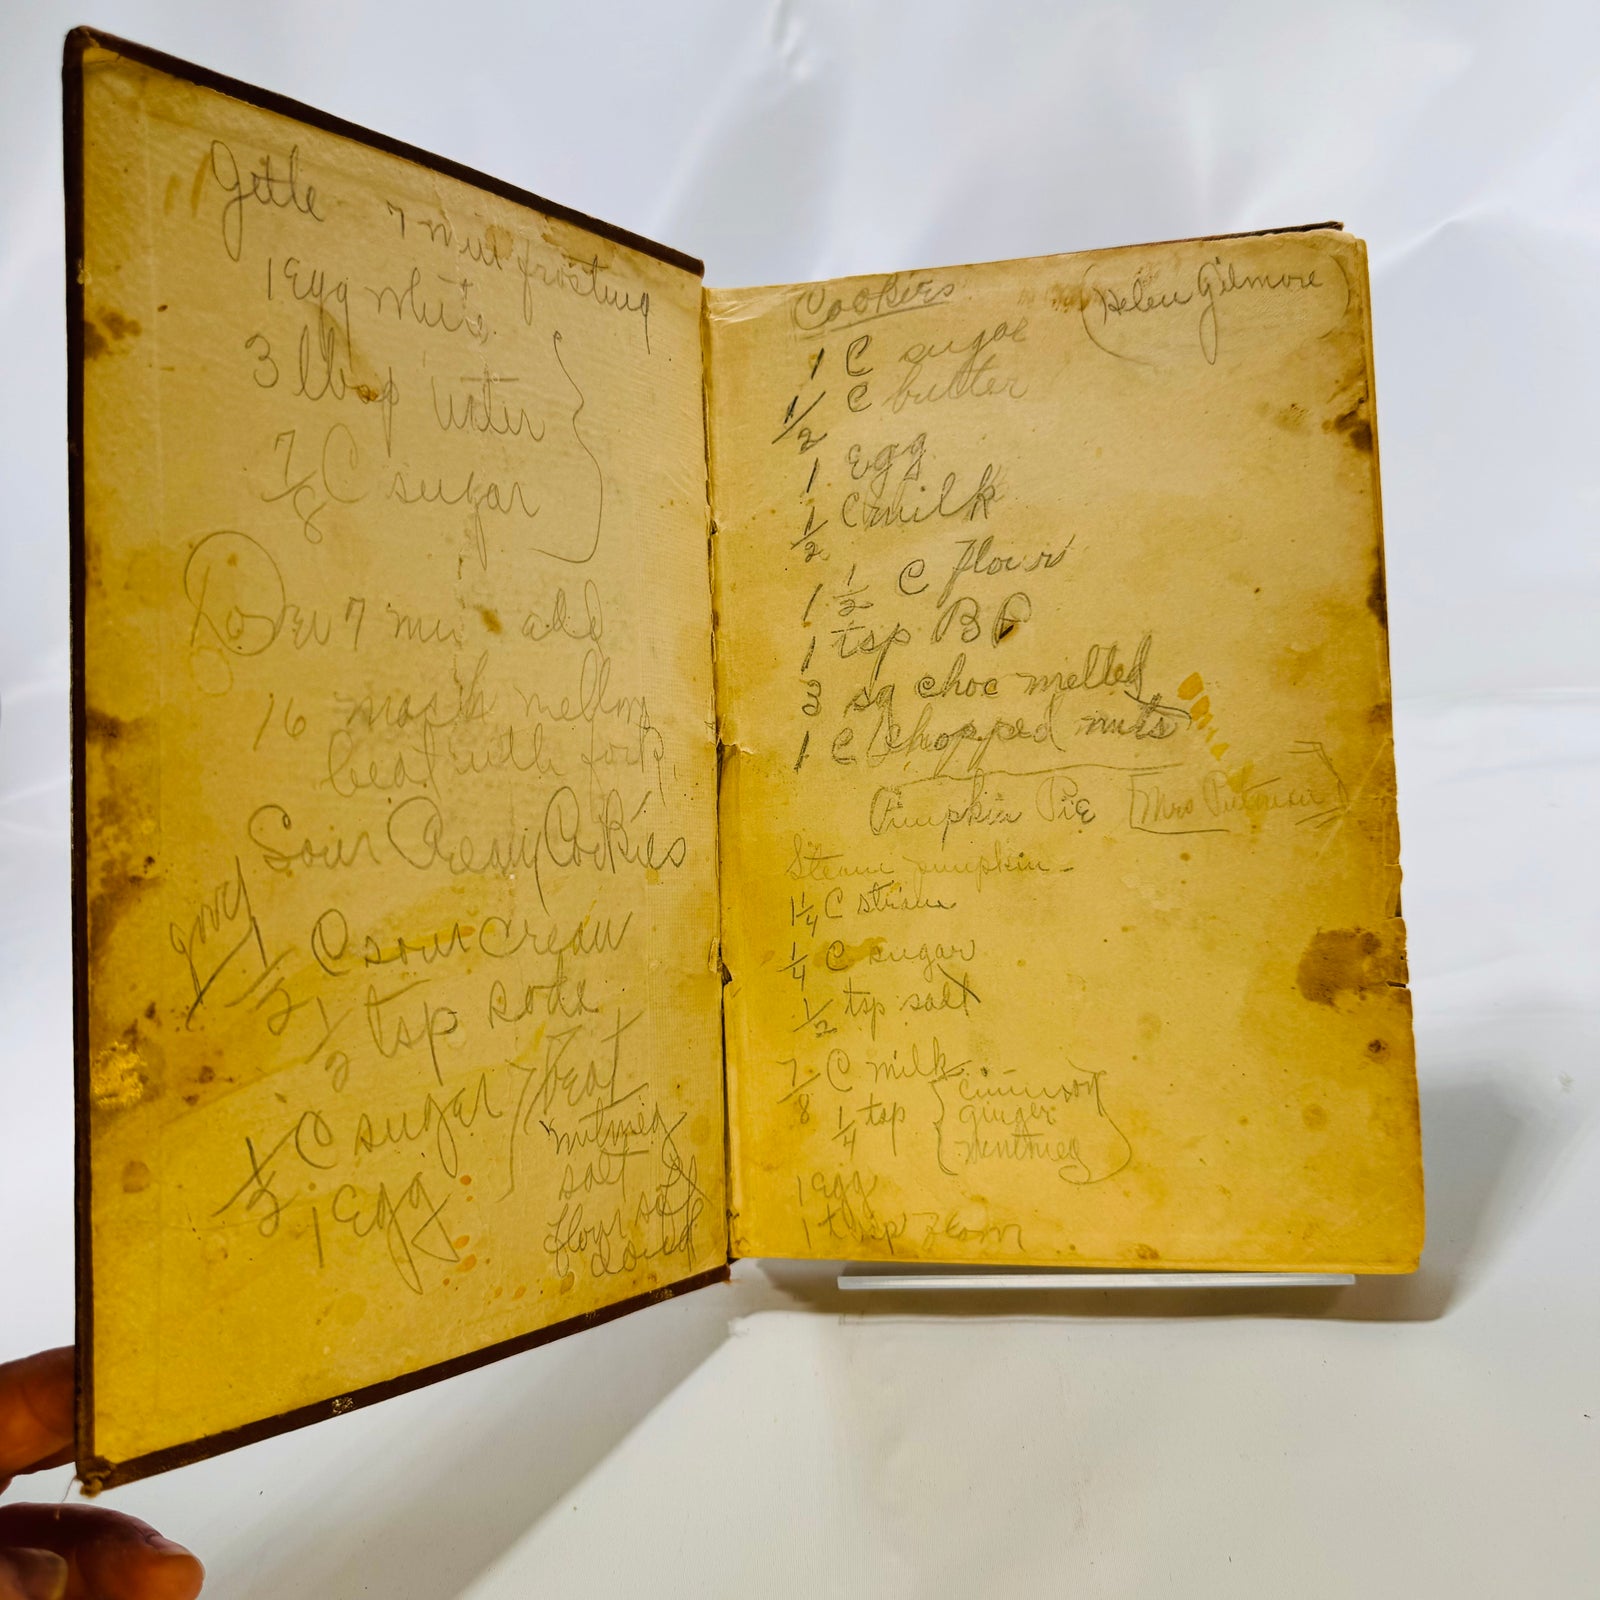 7 min frosting
1 Egg white
3 tbsp water
7/8 C sugar
over 7 min add
16 marsh mellow
beat with fork
Sour Cream Cookies
1/2 C sour cream
1/2 tsp soda
1/2 C sugar } beat
1 Egg
nutmeg
salt
flour
Cookies (Helen Gilmore)
1 C sugar
1/2 C butter
1 Egg
1/2 C milk
1 1/2 C flour
1 tsp BP
3 sq choc melted
1 C chopped nuts
Pumpkin Pie [Mrs
Steam pumpkin -
1 1/4 C
1/4 C sugar
1/2 tsp salt
7/8 C milk
1/4 tsp { cinnamon
ginger
nutmeg }
1 egg
1 tbsp